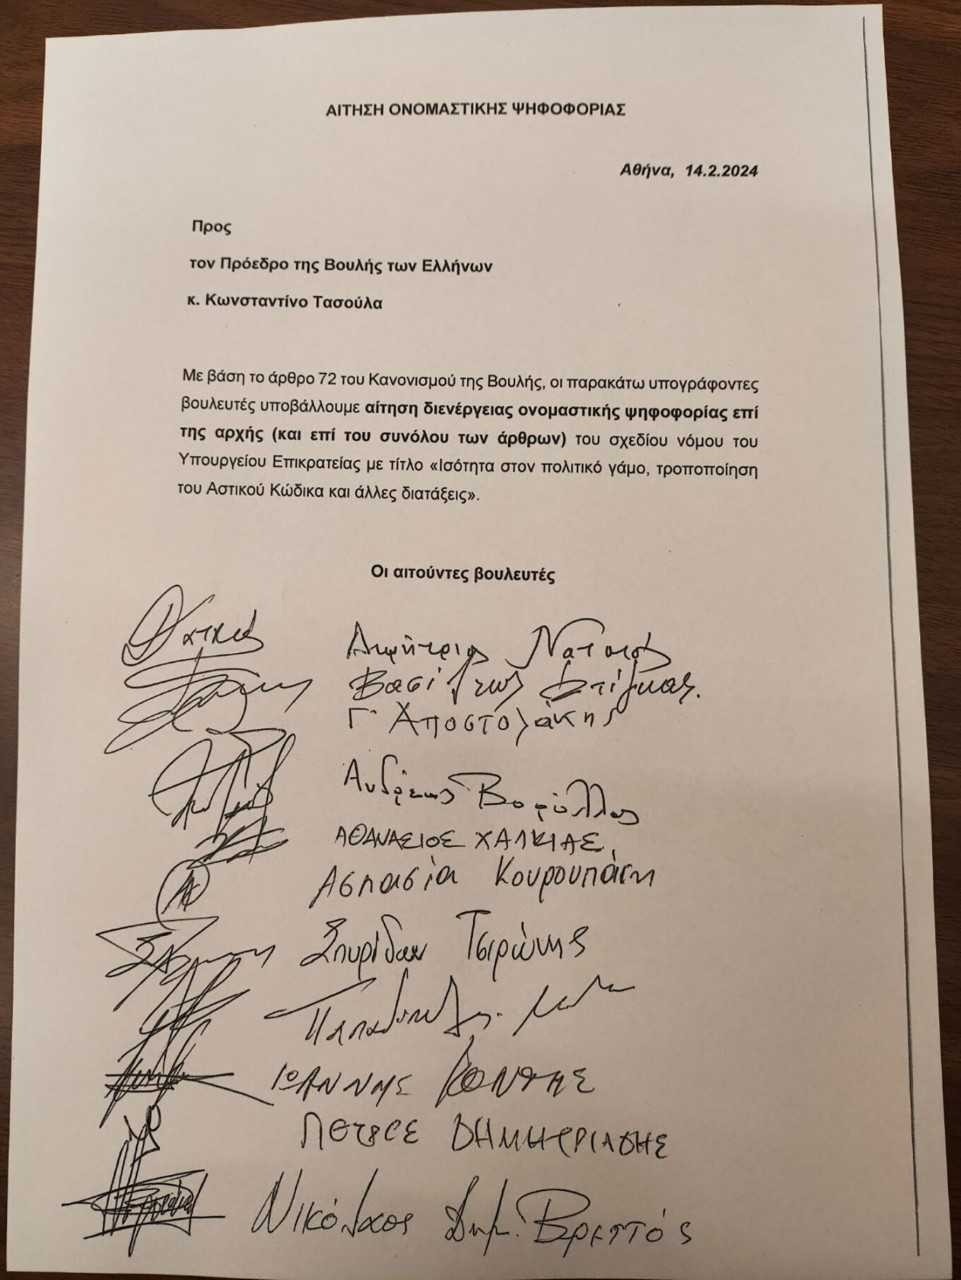 ΑΙΤΗΣΗ ΟΝΟΜΑΣΤΙΚΗΣ ΨΗΦΟΦΟΡΙΑΣ
Αθήνα, 14.2.2024
Προς
τον Πρόεδρο της Βουλής των Ελλήνων
κ. Κωνσταντίνο Τασούλα
Με βάση το άρθρο 72 του Κανονισμού της Βουλής, οι παρακάτω υπογράφοντες
βουλευτές υποβάλλουμε αίτηση διενέργειας ονομαστικής ψηφοφορίας επί
της αρχής (και επί του συνόλου των άρθρων) του σχεδίου νόμου του
Υπουργείου Επικρατείας με τίτλο «Ισότητα στον πολιτικό γάμο, τροποποίηση
του Αστικού Κώδικα και άλλες διατάξεις».
Οι αιτούντες βουλευτές
Δημήτριος Νατσιός
Βασίλειος Στίγκας.
Γ. Αποστολάκης
Ανδρέας Βορύλλας
ΑΘΑΝΑΣΙΟΣ ΧΑΛΚΙΑΣ
Ασπασία Κουρουπάκη
Σπυρίδων Τσιρώνης
ΙΩΑΝΝΗΣ ΚΟΝΤΗΣ
ΠΕΤΡΟΣ ΔΗΜΗΤΡΙΑΔΗΣ
Νικόλαος Δημ. Βρεττός